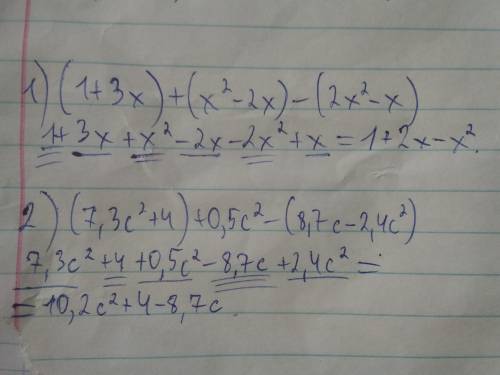 1) (1+3x)+(x²-2x)-(2x²-x)
1+3x+x²-2x-2x²+x=1+2x-x².
2) (7,3c²+4)+0,5c²-(8,7c-2,4c²)
7,3c²+4+0,5c²-8,7c+2,4c²=
=10,2c²+4-8,7c.